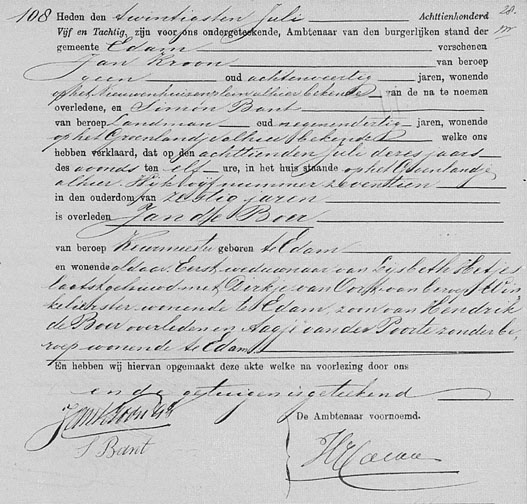 108 Heden den twintigsten Juli Achttienhonderd 28.
Vijf en Tachtig, zijn voor ons ondergeteekende, Ambtenaar van den burgerlijken stand der
gemeente Edam verschenen
Jan Kroon van beroep
geen oud achtenveertig jaren, wonende
op het alhier bekende van de na te noemen
overledene, en Simon Bant
van beroep Landman oud negenendertig jaren, wonende
op het Groenland alhier bekende welke ons
hebben verklaard, dat op den achttienden Juli dezes jaars
des avonds ten elf ure, in het huis staande op het
alhier Wijk nummer zeventien
in den ouderdom van zestig jaren
is overleden Jan de Boer
van beroep Keurmeester geboren te Edam
en wonende aldaar Eerst weduwnaar van Lijsbeth
laatst gehuwd met Dirkje van van beroep Win
kelierster wonende te Edam, zoon van Hendrik
de Boer overleden en Aagje van der Poorte zonder be,
roep wonende te Edam
En hebben wij hiervan opgemaakt deze akte welke na voorlezing door ons
en de getuigen is geteekend
De Ambtenaar voornoemd.
S Bant